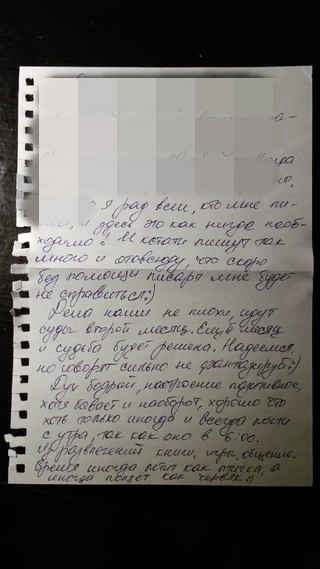 я рад всем, кто мне пи-
и здесь это как нигде необ-
ходимо. И кстати пишут так
много и отовсюду, что скоро
без помощи писаря мне будет
не справиться:)
Дела наши не плохи, идут
суды второй месяц. Ещё месяц
и судьба будет решена. Надеемся,
но говорят сильно не
Дух бодрый, настроение позитивное,
хотя бывает и наоборот, хорошо что
хоть только иногда и всегда почти
с утра, так как оно в 6:00.
Из развлечений книги, игры, общение.
Время иногда летит как птичка, а
иногда ползёт как червяк:)